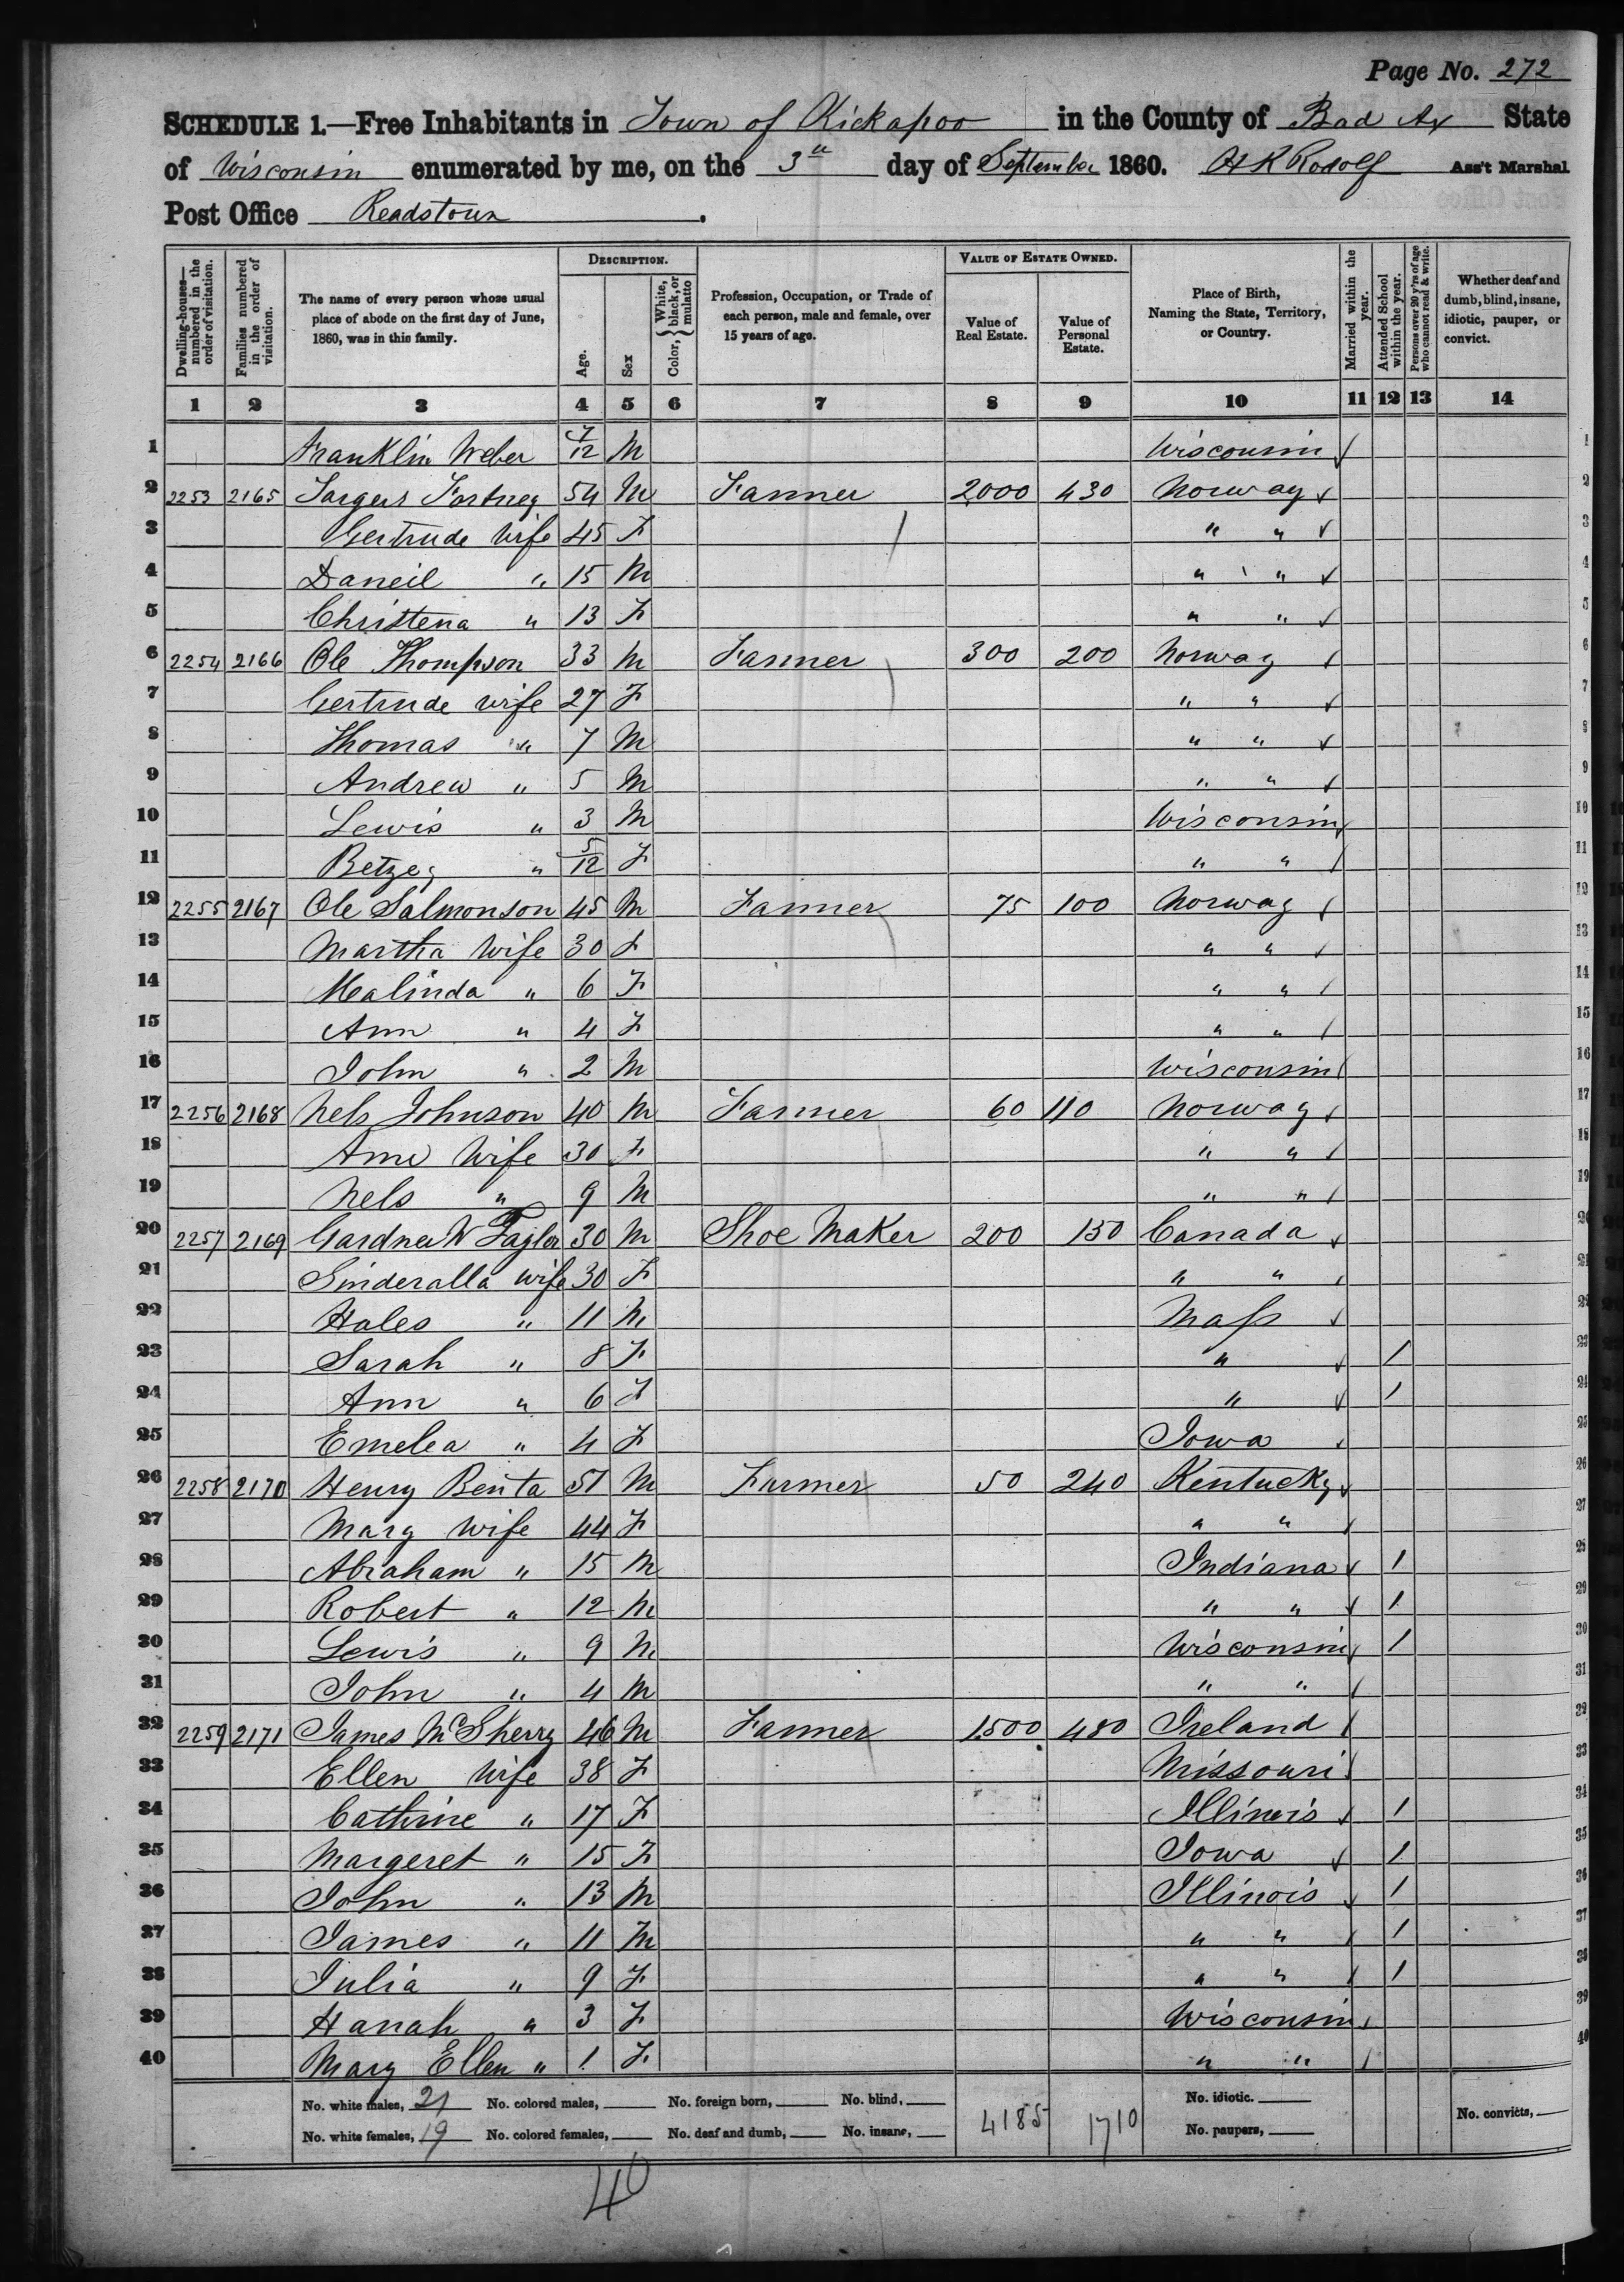 Page No. 272
SCHEDULE 1.—Free Inhabitants in Town of Kickapoo in the County of Bad Ax State
of Wisconsin enumerated by me, on the 3d day of September 1860. A K Rodolf Ass't Marshal
Post Office Readstown.
Dwelling-houses—numbered in the order of visitation. Families numbered in the order of visitation. The name of every person whose usual place of abode on the first day of June, 1860, was in this family. DESCRIPTION. Age. Sex Color, { White, black, or mulatto Profession, Occupation, or Trade of each person, male and female, over 15 years of age. VALUE OF ESTATE OWNED. Value of Real Estate. Value of Personal Estate. Place of Birth, Naming the State, Territory, or Country. Married within the year. Attended School within the year. Persons over 20 y'rs of age who cannot read & write. Whether deaf and dumb, blind, insane, idiotic, pauper, or convict.
1 2 3 4 5 6 7 8 9 10 11 12 13 14
1 Franklin Weber 7/12 M Wisconsin 1
2 2253 2165 Targus Fortney 54 M Farmer 2000 430 Norway 2
3 Gertrude Wife 45 F " " 3
4 Daneil " 15 M " " 4
5 Christena " 13 F " " 5
6 2254 2166 Ole Thompson 33 M Farmer 300 200 Norway 6
7 Gertrude wife 27 F " " 7
8 Thomas " 7 M " " 8
9 Andrew " 5 M " " 9
10 Lewis " 3 M Wisconsin 10
11 Betzey " 5/12 F " " 11
12 2255 2167 Ole Salmonson 45 M Farmer 75 100 Norway 12
13 Martha Wife 30 F " " 13
14 Mealinda " 6 F " " 14
15 Ann " 4 F " " 15
16 John " 2 M Wisconsin 16
17 2256 2168 Nels Johnson 40 M Farmer 60 110 Norway 17
18 Ame Wife 30 F " " 18
19 Nels " 9 M " " 19
20 2257 2169 Gardner W Taylor 30 M Shoe Maker 200 150 Canada 20
21 Sinderalla wife 30 F " " 21
22 Hales " 11 M Mass 22
23 Sarah " 8 F " 1 23
24 Ann " 6 F " 1 24
25 Emelea " 4 F Iowa 25
26 2258 2170 Henry Benta 51 M Farmer 50 240 Kentucky 26
27 Mary Wife 44 F " " 27
28 Abraham " 15 M Indiana 1 28
29 Robert " 12 M " " 1 29
30 Lewis " 9 M Wisconsin 1 30
31 John " 4 M " " 31
32 2259 2171 James McSherry 46 M Farmer 1500 480 Ireland 32
33 Ellen Wife 38 F Missouri 33
34 Cathrine " 17 F Illinois 1 34
35 Margeret " 15 F Iowa 1 35
36 John " 13 M Illinois 1 36
37 James " 11 M " " 1 37
38 Julia " 9 F " " 1 38
39 Hanah " 3 F Wisconsin 39
40 Mary Ellen " 1 F " " 40
No. white males, 21 No. colored males, No. foreign born, No. blind, 4185 1710 No. idiotic. No. convicts,
No. white females, 19 No. colored females, No. deaf and dumb, No. insane, No. paupers,
40